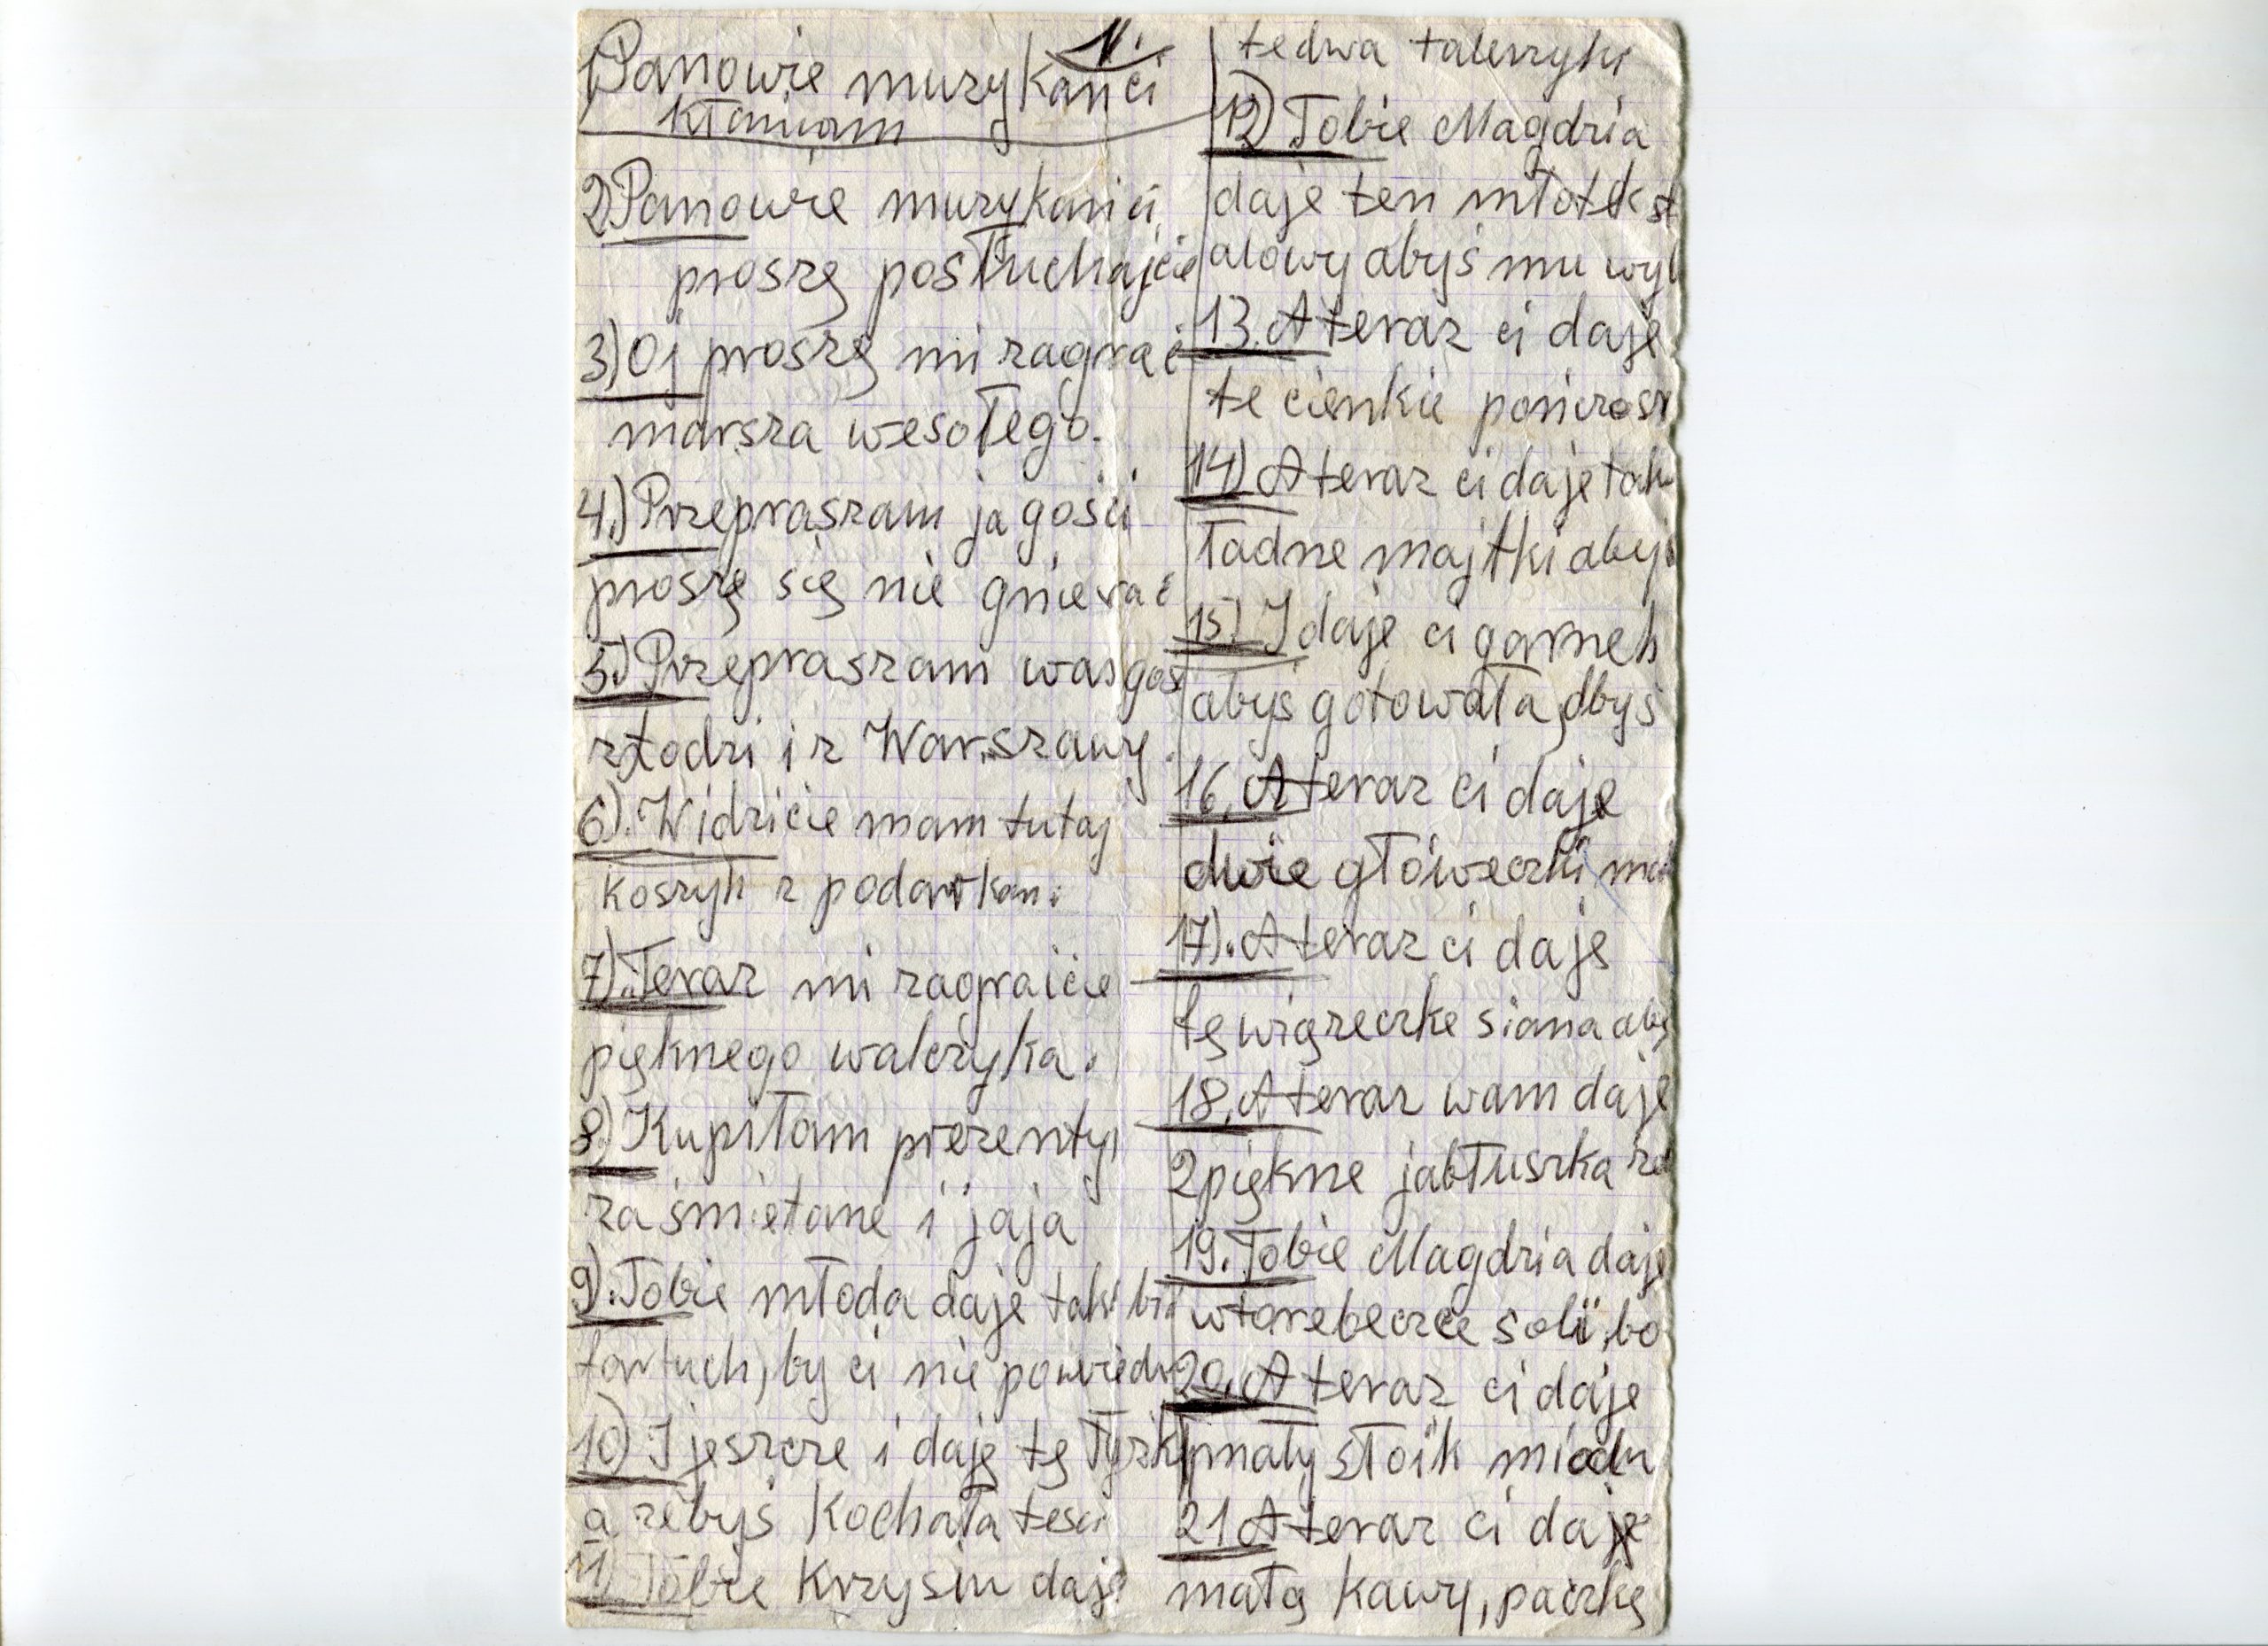 1.
1) Panowie muzykanci
kłaniam
2) Panowie muzykanci,
proszę posłuchajcie
3) Oj proszę mi zagrać
marsza wesołego.
4.) Przepraszam ja gości
proszę się nie gnierać
5.) Przepraszam was goś
z Łodzi i z Warszawy.
6). Widzicie mam tutaj
koszyk z podarkami
7). Teraz mi zagraicie
pięknego walczyka.
8) Kupiłam prezenty,
za śmietane i jaja
9). Tobie młoda daje taki
fartuch, by ci nie
10) I jeszcze i daję tę łyżk
a żebyś kochała
11) Tobie Krzysiu daję
te dwa talerzyki
12) Tobie Magdzia
daje ten młotek st
alowy abyś mu wyb
13. A teraz ci daję
te cienkie
14) A teraz ci daje
ładne majtki abyś
15.) I daję ci garnek
abyś gotowała, abyś
16. A teraz ci daję
dwie główeczki
17). A teraz ci daję
tę wiązeczke siana aby
18. A teraz wam daję
2 piękne jabłuszka
19. Tobie Magdzia daję
w torebeczce soli, bo
20. A teraz ci daję
mały słoik miodu
21 A teraz ci daję
małą kawy, paczkę